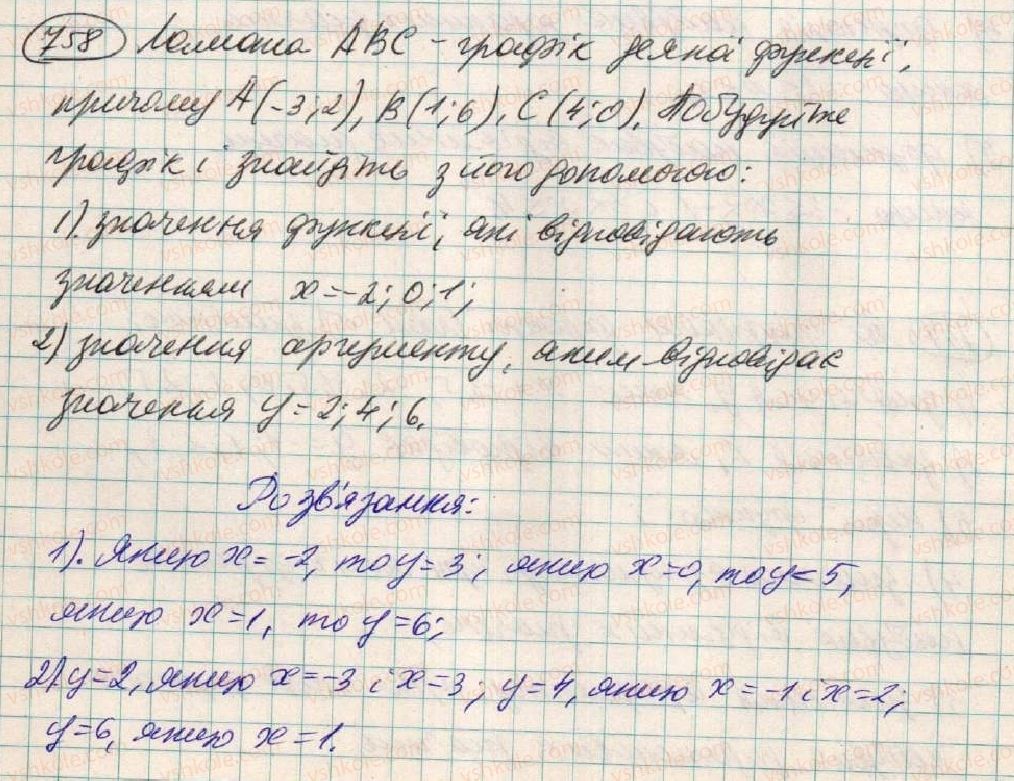 758 Ламана ABC - графік деякої функції,
причому A(-3;2), B(1;6), C(4;0). Побудуйте
графік і знайдіть з його допомогою:
1). значення функції, які відповідають
значенням x=-2; 0; 1;
2) значення аргументу, яким відповідає
значення y=2; 4; 6.
Розв'язання:
1). Якщо x=-2, то y=3; якщо x=0, то y=5,
якщо x=1, то y=6;
2) y=2, якщо x=-3 і x=3; y=4, якщо x=-1 і x=2;
y=6, якщо x=1.